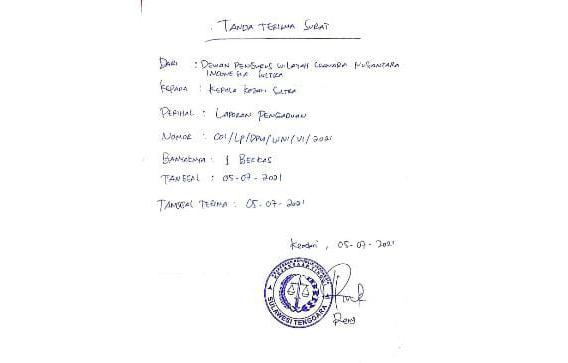 TANDA TERIMA SURAT
DARI : DEWAN PENGURUS WILAYAH NUSANTARA
INDONESIA SULTRA
KEPADA : KEPALA KEJATI SULTRA
PERIHAL : LAPORAN PENGADUAN
NOMOR : 001/LP/DPW/WNI/VI/2021
BANYAKNYA : 1 BERKAS
TANGGAL : 05-07-2021
TANGGAL TERIMA : 05-07-2021
Kendari, 05-07-2021
SULAWESI TENGGARA